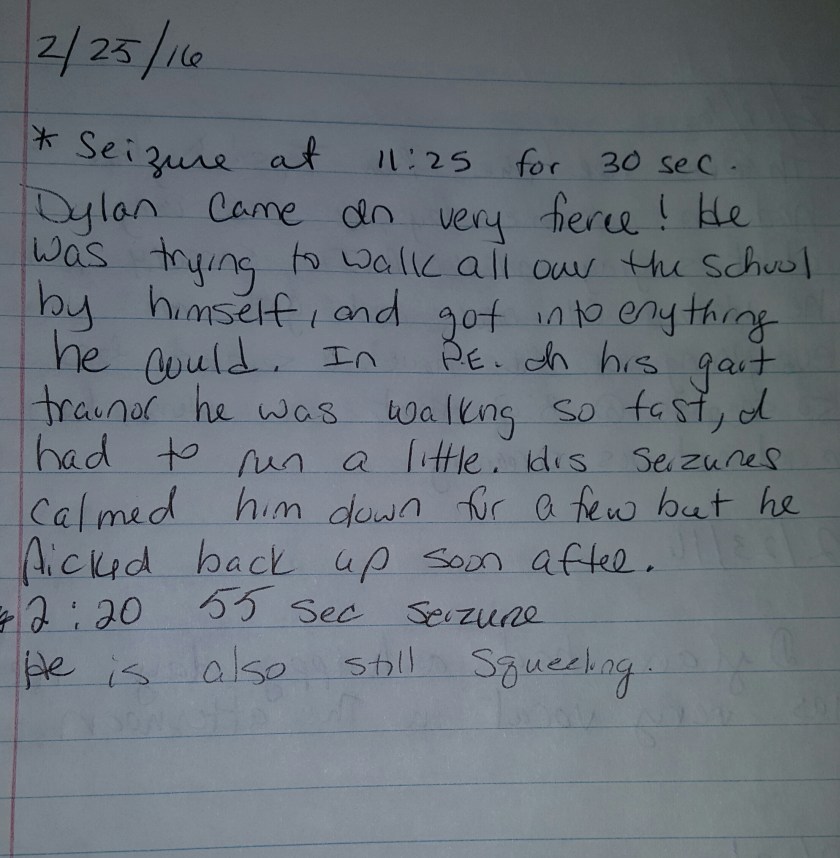 2/25/16
* Seizure at 11:25 for 30 sec.
Dylan came in very fierce! He
was trying to walk all over the school
by himself, and got into enything
he could. In P.E. in his gait
trainor he was walking so fast, I
had to run a little. His seizures
calmed him down for a few but he
picked back up soon after.
* 2:20 55 sec seizure
He is also still squeeling.